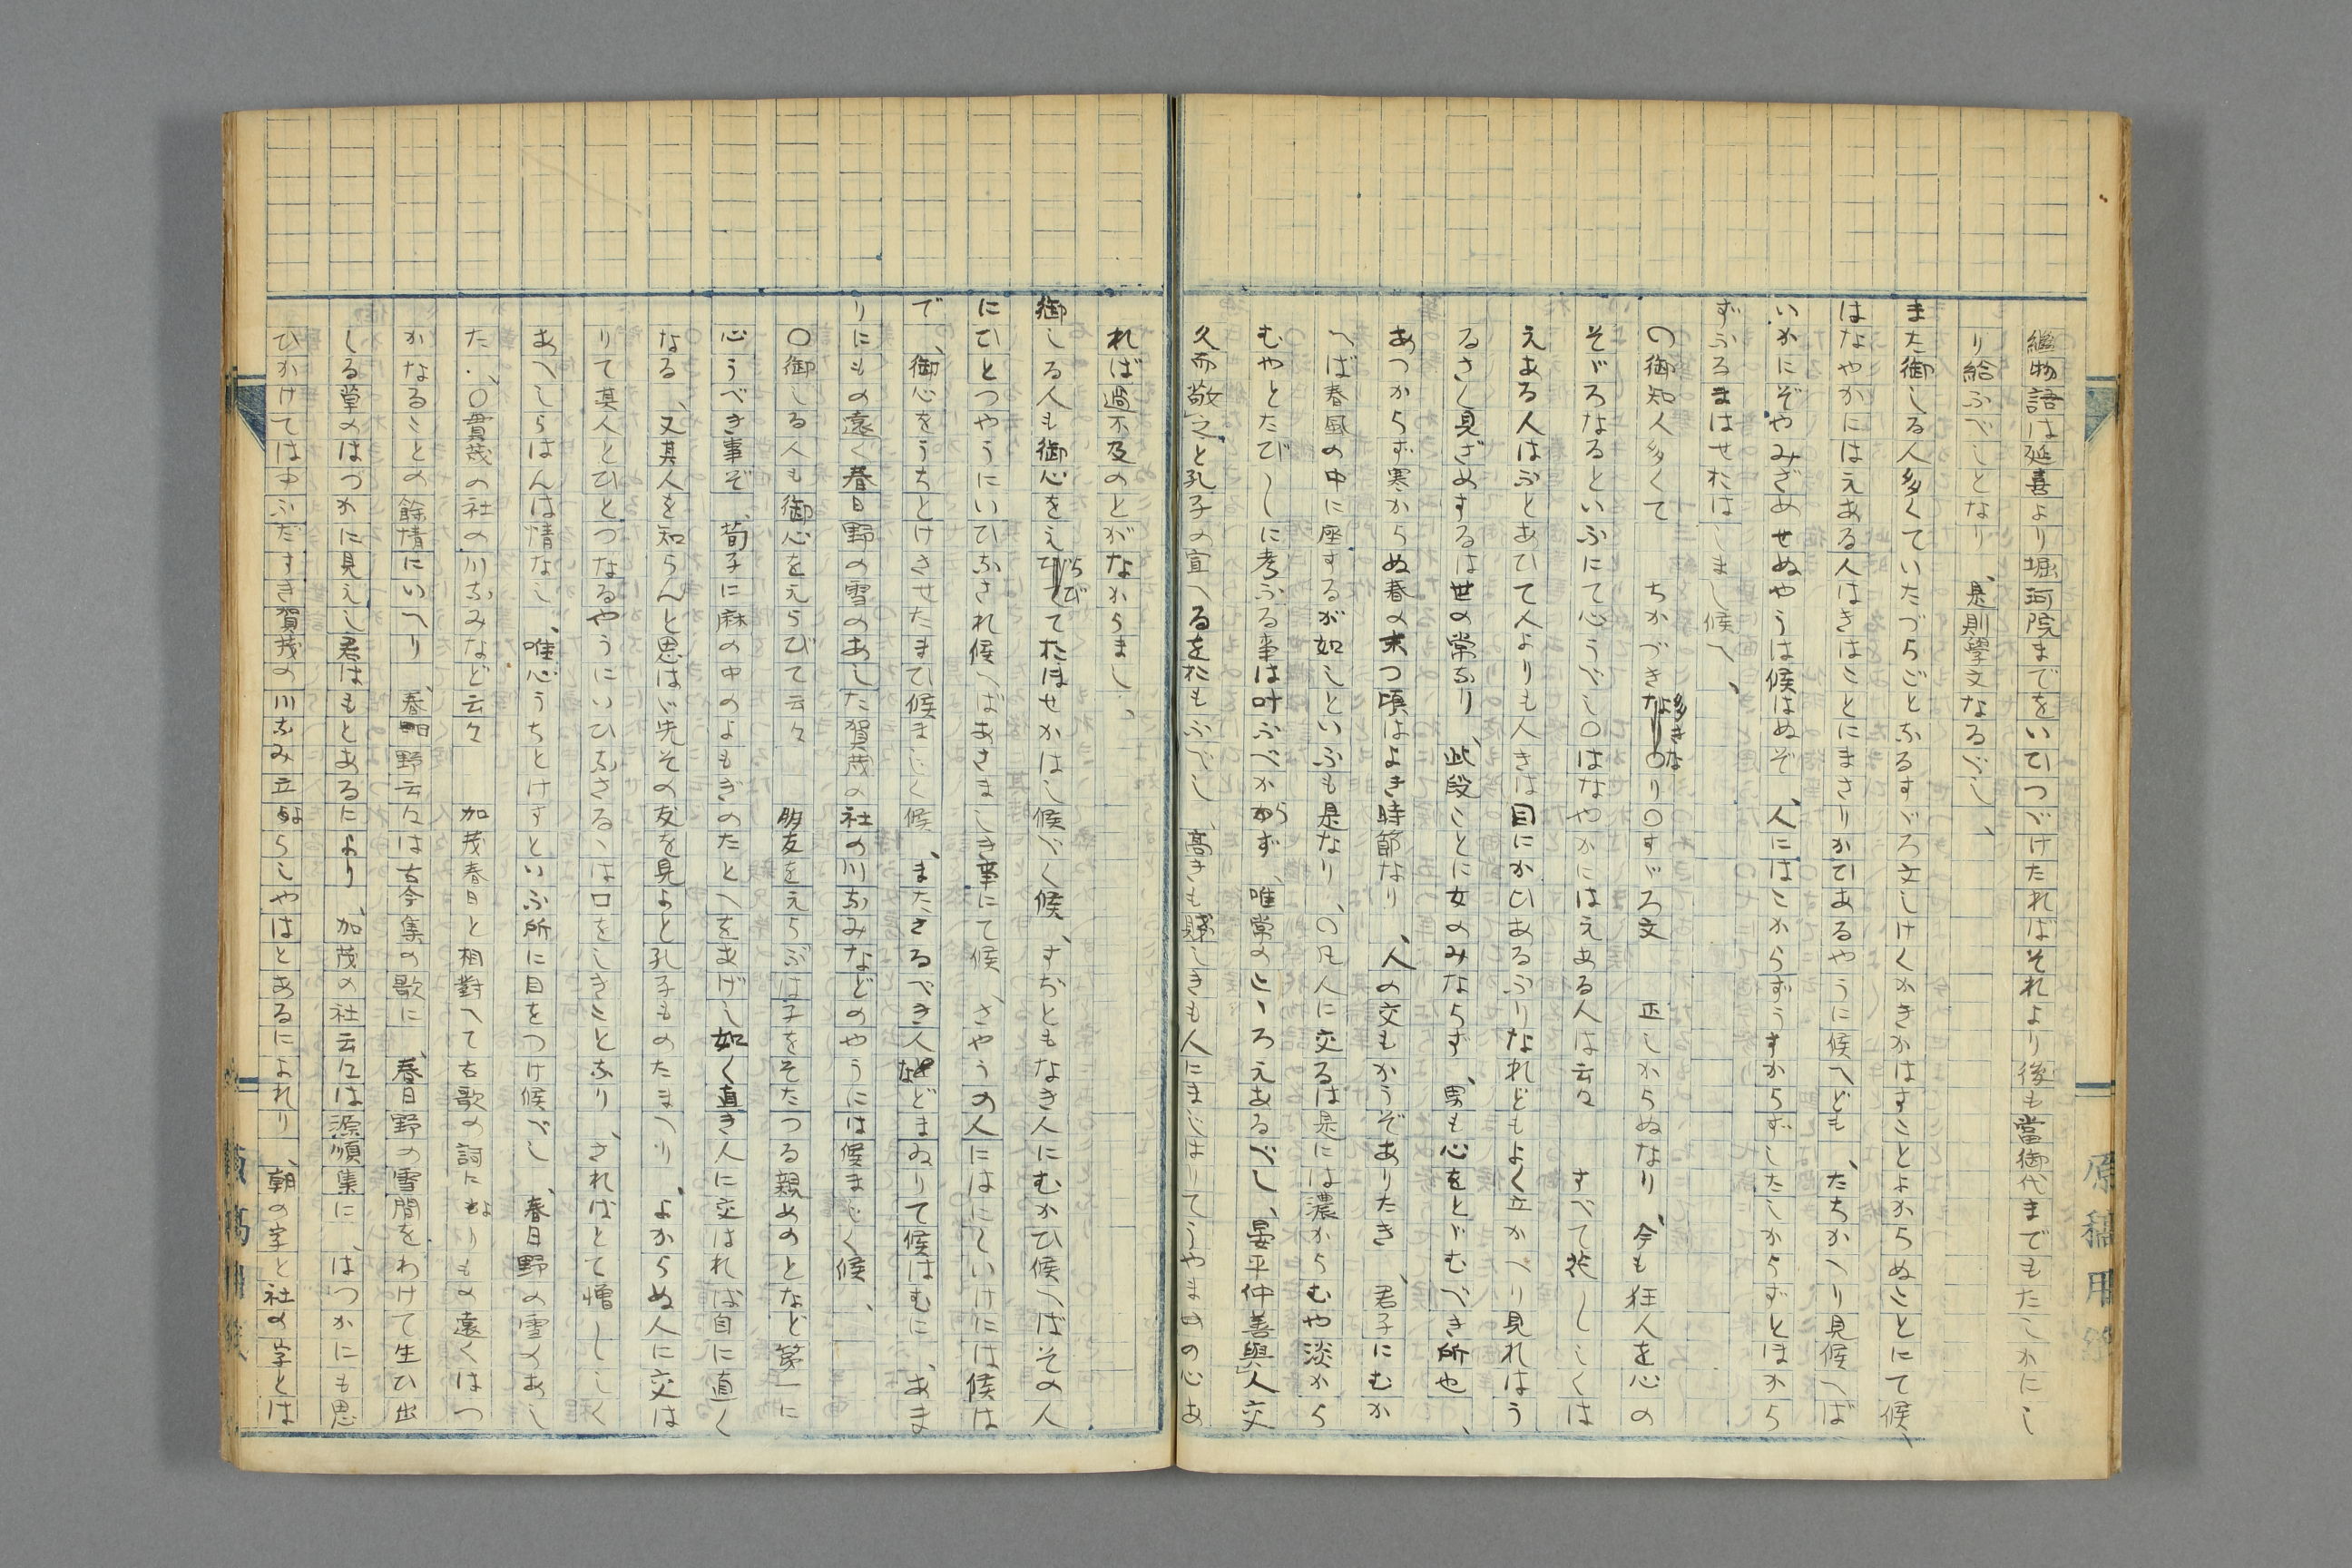 繼物語は延喜より堀河院までをいひつゞけたればそれより後も當御代までもたしかにし
り給ふべしとなり、是則學文なるべし、
また御しる人多くていたづらごとふるすゞろ文しげくかきかはすことよからぬことにて候、
はなやかにはえある人はきはことにまさりかひあるやうに候へども、たちかへり見候へば
いかにぞやみざめせぬやうは候はぬぞ、人にはこからずうすからずしたしからずとほから
ずふるまはせたはしまし候へ、
〇御知人多くて　ちかづき多きなり〇すゞろ文　正しからぬなり、今も狂人を心の
そゞろなるといふにて心うべし〇はなやかにはえある人は云々　すべて花しくは
えある人はふとあひて人よりも人きは目にかひあるふりなれどもよく立かへり見れはう
るさく見ざめするは世の常なり、此段ことに女のみならず、男も心をとゞむべき所也、
あつからず寒からぬ春の末つ頃はよき時節なり、人の交もかうぞありたき、君子にむか
へば春風の中に座するが如しといふも是なり、〇凡人に交るは是には濃からむや淡から
むやとたび〱に考ふる事は叶ふべからず、唯常のところえあるべし、晏平仲善與人交
久而敬之と孔子の宣へるをおもふべし、高きも賤しきも人にまじはりてうやまひの心あ
れば過不及のとがなからまし、
御しる人も御心をえらびておはせかはし候べく候、すこともなき人にむかひ候へばその人
にひとつやうにいひなされ候へばあさましき事にて候、さやうの人にはにくいけには候は
で、御心をうちとけさせたまひ候まじく候、またさるべき人などまゐりて候はむに、あま
りにもの遠く春日野の雪のあした賀茂の社の川なみなどのやうには候まじく候、
〇御しる人も御心をえらびて云々　朋友をえらぶは子をそだつる親めのとなど第一に
心うべき事ぞ、荀子に麻の中のよもぎのたとへをあげし如く直き人に交はれば自に直く
なる、又其人を知らんと思はゞ先その友を見よと孔子ものたまへり、よからぬ人に交は
りて其人とひとつなるやうにいひなさるゝは口をしきことなり、さればとて憎しく
あへしらはんは情なし、唯心うちとけずといふ所に目をつけ候べし、春日野の雪のあし
た、〇貴茂の社の川なみなど云々　加茂春日と相對へて古歌の詞によりもの遠くはつ
かなることの餘情にいへり、春日野云々は古今集の歌に、春日野の雪間をわけて生ひ出
しる草のはつかに見えし君はもとあるにより、加茂の社云々は源順集に、はつかにも思
ひかけてはゆふだすき賀茂の川なみ立ぬらしやはとあるによれり、朝の字と社の字とは
原稿用箋